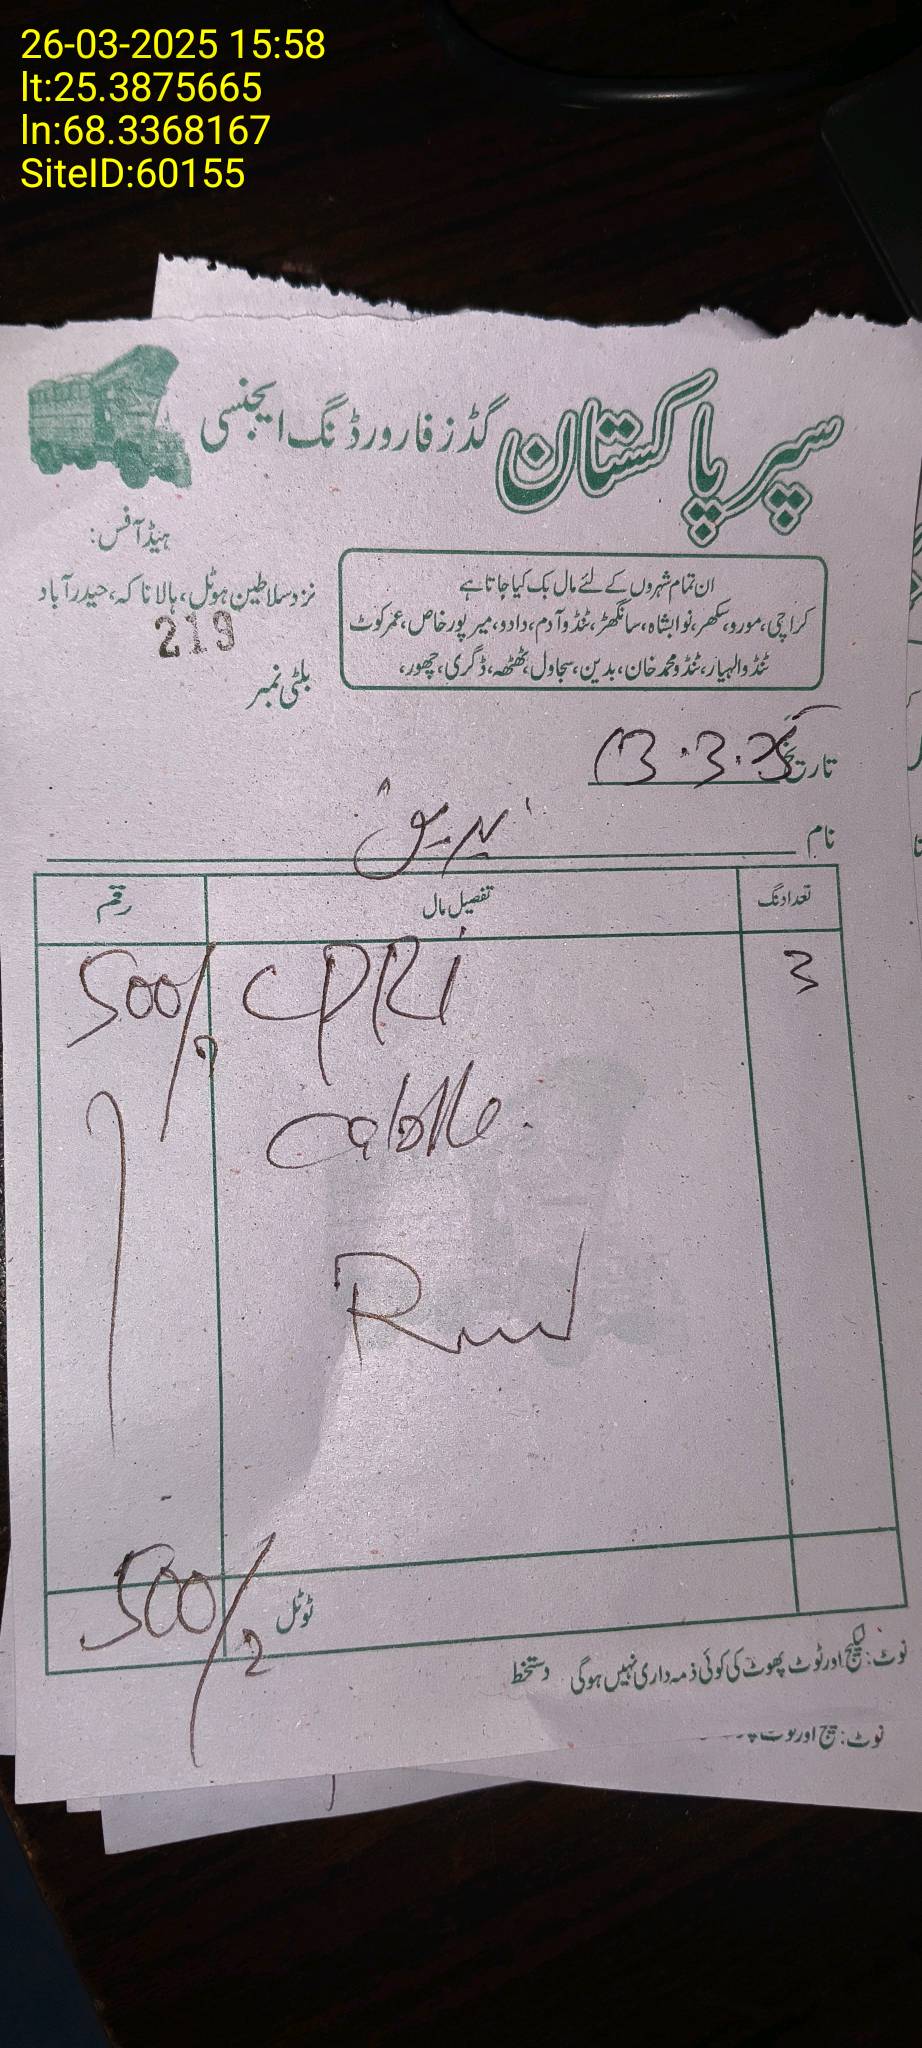 26-03-2025 15:58
lt:25.3875665
ln:68.3368167
SiteID:60155
سپر پاکستان گڈز فارورڈنگ ایجنسی
ہیڈ آفس:
نزد سلاطین ہوٹل، ہالا ناکہ، حیدرآباد
ان تمام شہروں کے لئے مال بک کیا جاتا ہے
کراچی، مورو، سکھر، نوابشاہ، سانگھڑ، ٹنڈوآدم، دادو، میرپورخاص، عمرکوٹ
ٹنڈوالہیار، ٹنڈومحمدخان، بدین، سجاول، ٹھٹھہ، ڈگری، چھور،
219
بلٹی نمبر
تاریخ 13.3.25
نام
تعداد نگ تفصیل مال رقم
3 CPRI 500/
Cable
ٹوٹل 500/
نوٹ: لیکیج اور ٹوٹ پھوٹ کی کوئی ذمہ داری نہیں ہوگی دستخط